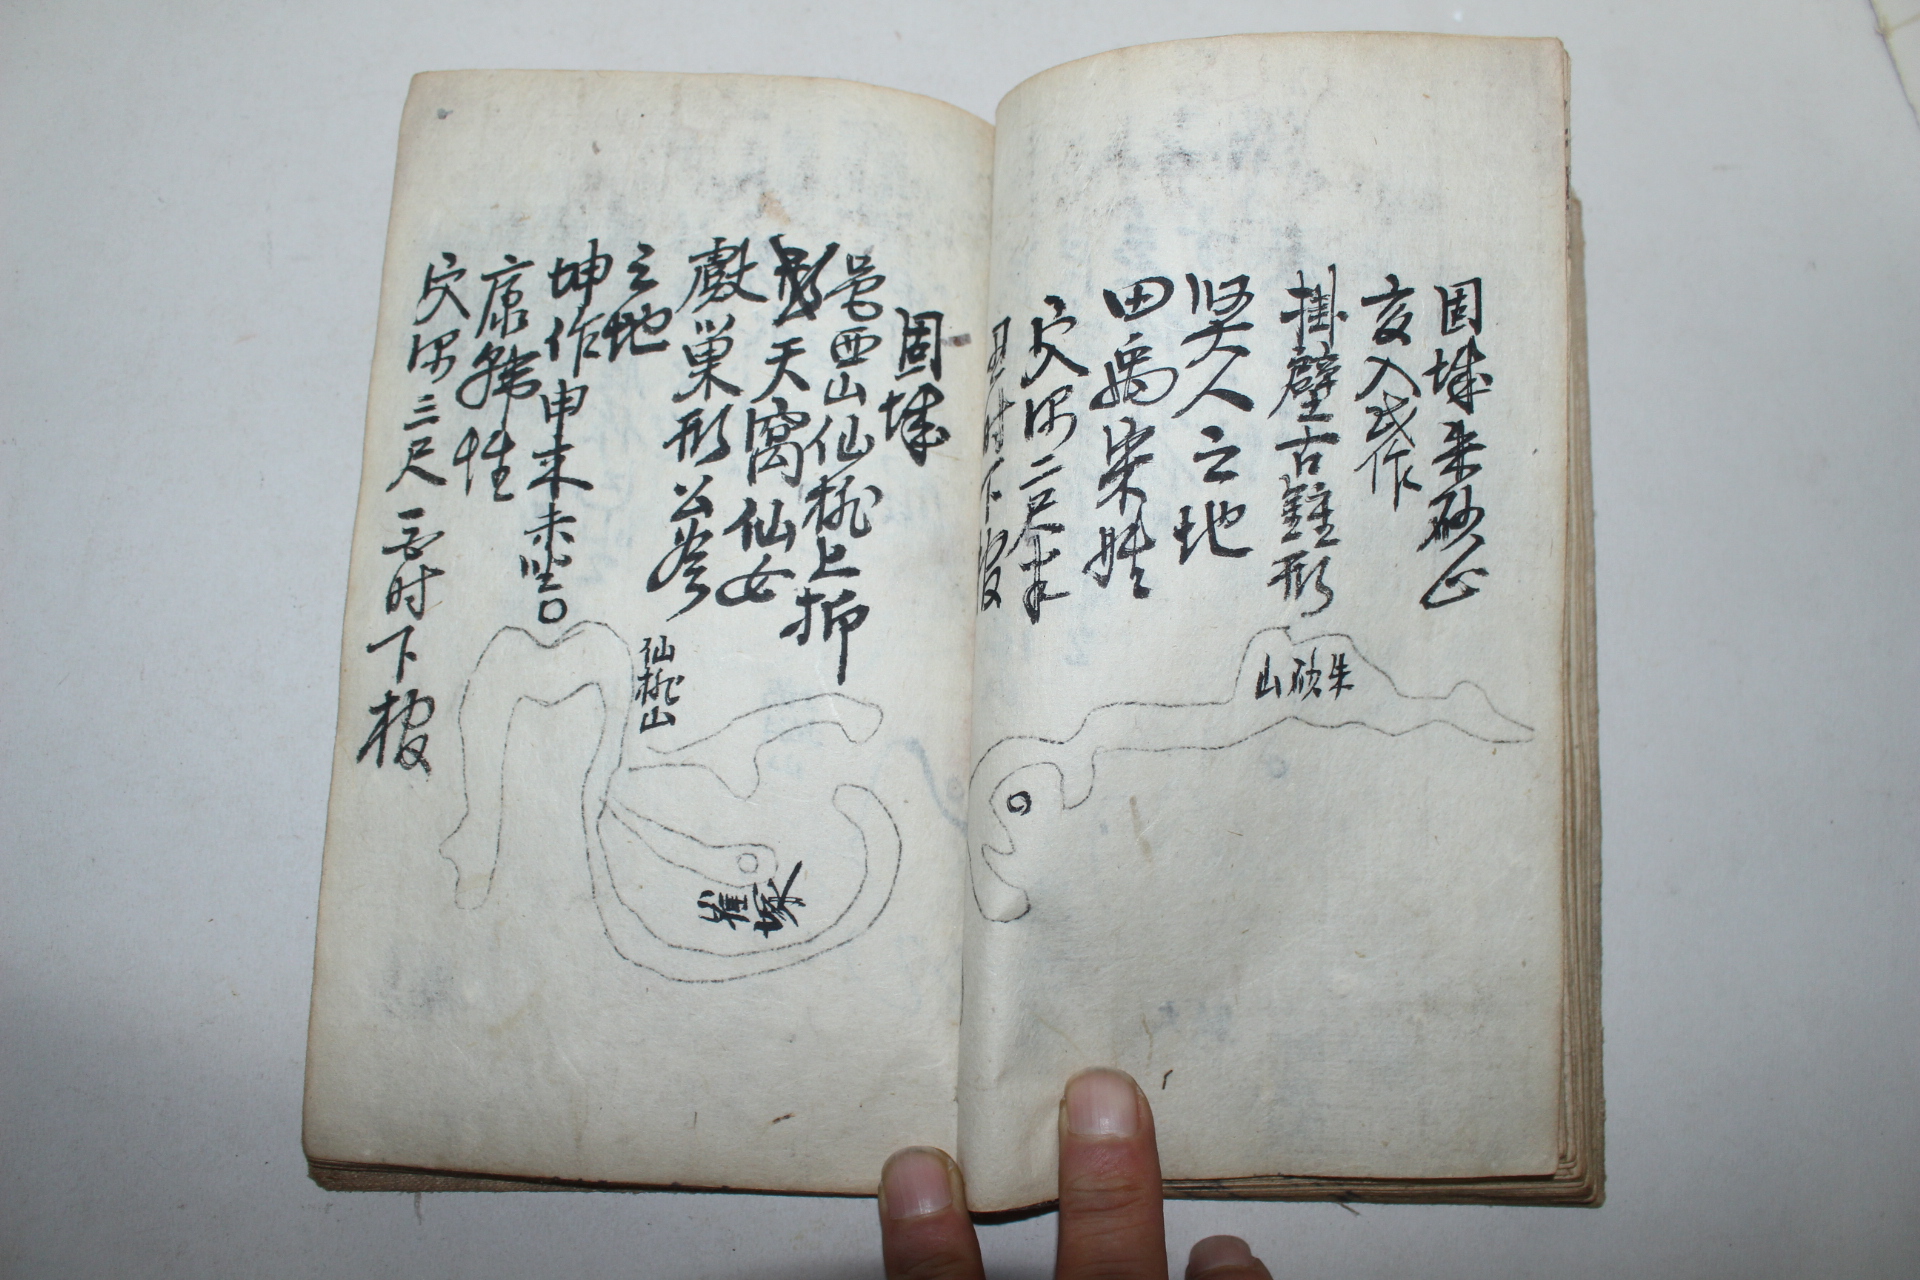 固城朱砂山
亥入戌作
掛壁古鍾形
賢人之地
田禹宋姓
穴深二尺半
丑时下棺
朱砂山
固城
邑西山仙桃上抑
天窩仙女
戲巢形公爺
之地
坤作申来未坐
康韓性
穴深三尺 时下棺
仙桃山
崔塚